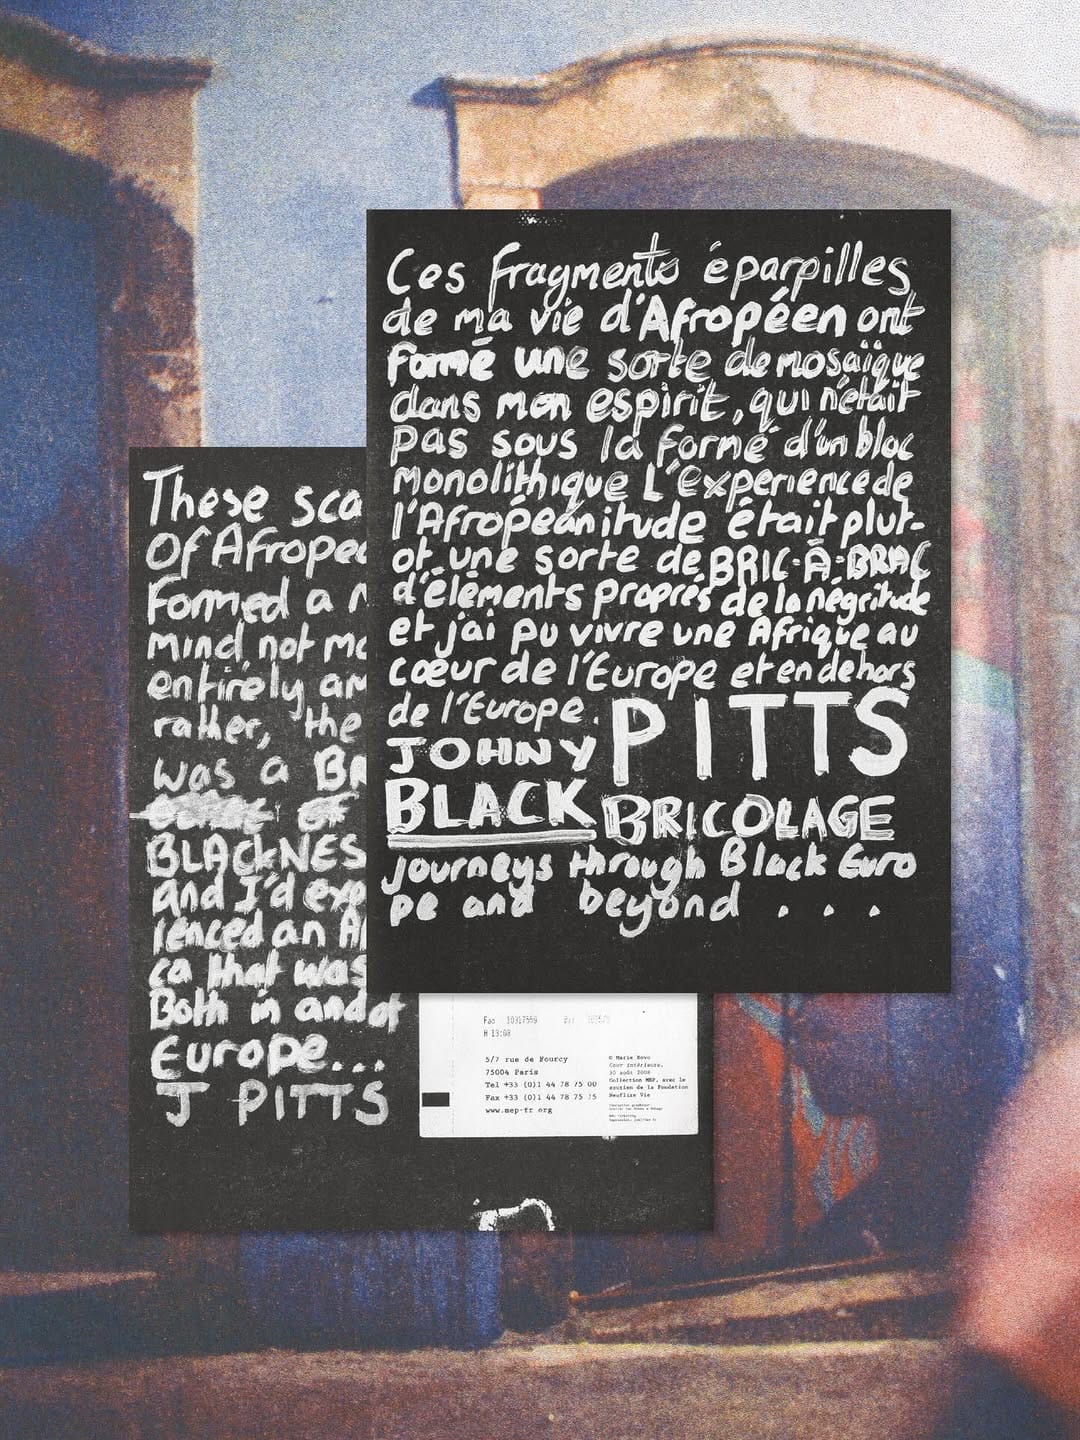 Ces fragments éparpilles
de ma vie d'Afropéen ont
formé une sorte de mosaïque
dans mon espirit, qui n'était
pas sous la formé d'un bloc
monolithique L'Experience de
l'Afropéanitude était plut-
ot une sorte de BRIC-À-BRAC
d'éléments proprés de la négritude
et j'ai pu vivre une Afrique au
cœur de l'Europe et en dehors
de l'Europe.
JOHNY PITTS
BLACK BRICOLAGE
journeys through Black Euro
pe and beyond ...
These sca
Of Afropea
Formed a m
mind, not mo
entirely an
rather, the
was a BR
BLACKNES
and I'd expe
ienced an Afr
ca that was
Both in and of
Europe...
J PITTS
H 13:08
5/7 rue de Fourcy
75004 Paris
Tel +33 (0)1 44 78 75 00
Fax +33 (0)1 44 78 75 15
www.mep-fr.org
© Marie Bovo
Cour intérieure,
30 août 2008
Collection MEP, avec le
soutien de la Fondation
Neuflize Vie